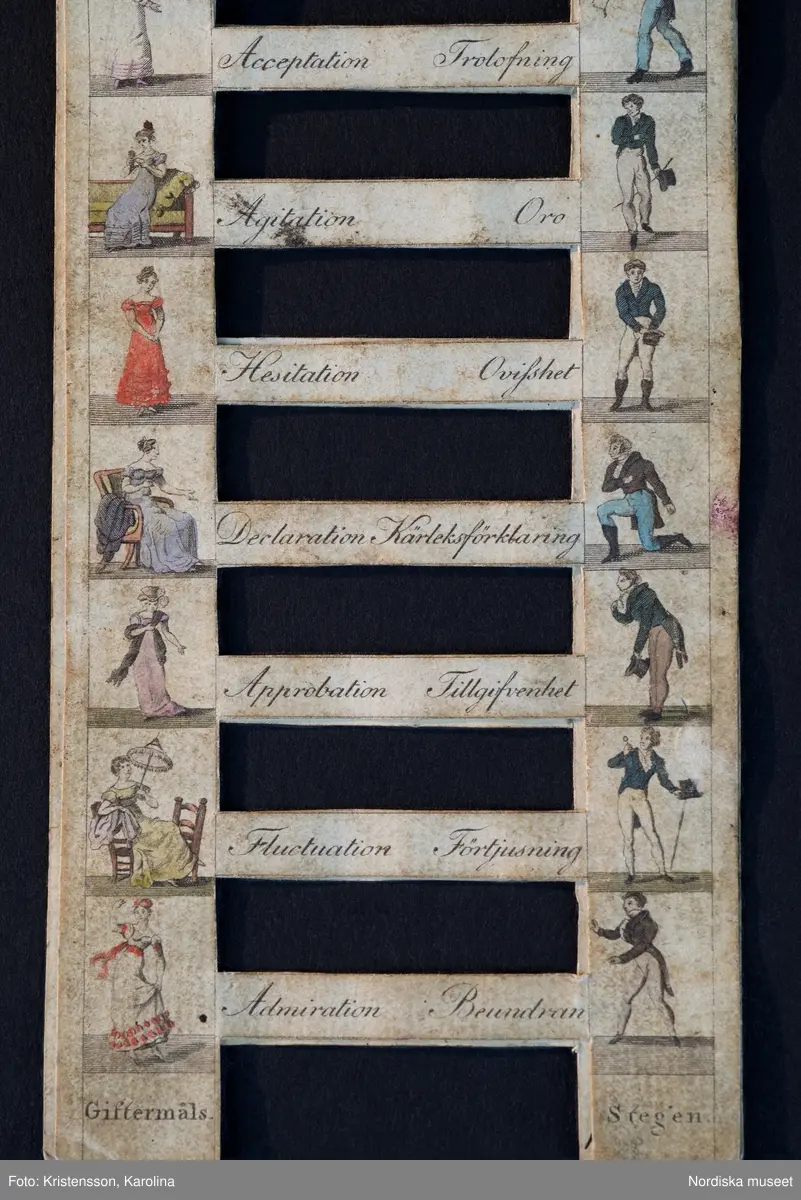 Acceptation Trolofning
Agitation Oro
Hesitation Ovifshet
Declaration Kärleksförklaring
Approbation Tillgifvenhet
Fluctuation Förtjusning
Admiration Beundran
Giftermåls. Stegen.
Foto: Kristensson, Karolina Nordiska museet